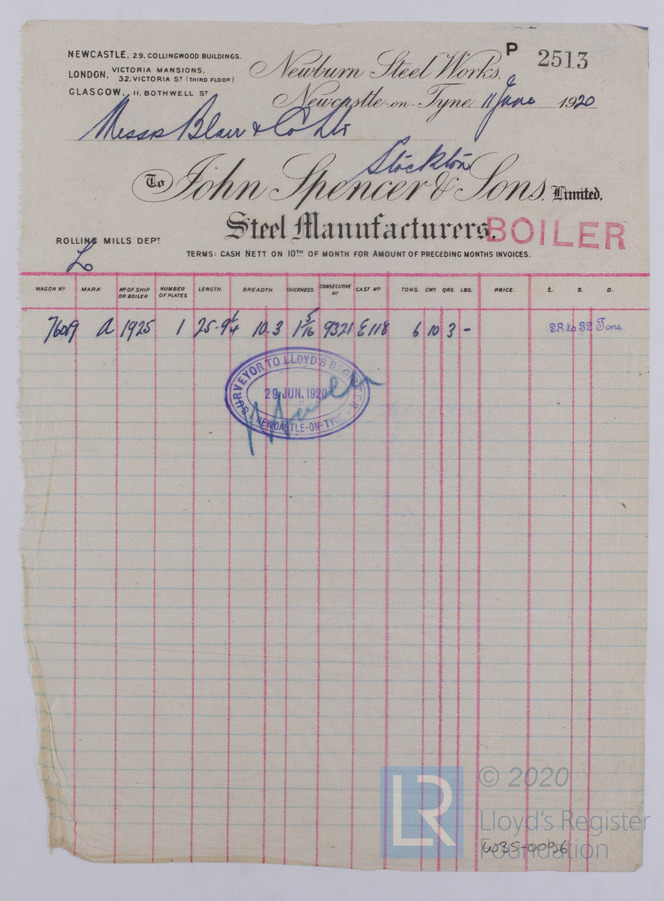 NEWCASTLE. 29. COLLINGWOOD BUILDINGS.
LONDON, VICTORIA MANSIONS.
32, VICTORIA ST (THIRD FLOOR)
GLASGOW, 11, BOTHWELL ST
P 2513
Newburn Steel Works,
Newcastle-on-Tyne, 11 June 1920
Messrs Blair & Co Ltd
Stockton
To John Spencer & Sons, Limited.
Steel Manufacturers
BOILER
ROLLING MILLS DEPT
TERMS: CASH NETT ON 10TH OF MONTH FOR AMOUNT OF PRECEDING MONTHS INVOICES.
WAGON NO MARK NO OF SHIP OR BOILER NUMBER OF PLATES LENGTH. BREADTH. THICKNESS. CONSECUTIVE NO CAST NO TONS. CWT. QRS. LBS. PRICE. £. S. D.
7609 A 1925 1 25-9¼ 10.3 1 5/16 9321 E118 6 10 3 - 28 to 32 Tons.
SURVEYOR TO LLOYD'S REGISTER
29 JUN. 1920
NEWCASTLE-ON-TYNE
LR
© 2020
Lloyd's Register
Foundation
W35-0056